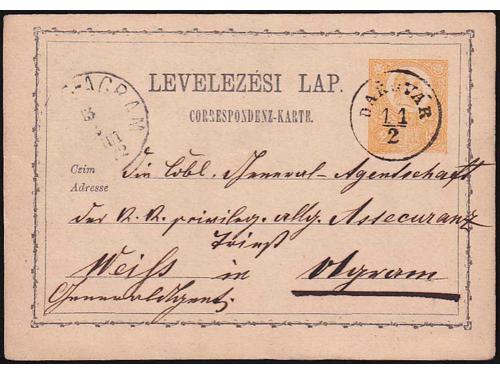 AGRAM
LEVELEZÉSI LAP.
CORRESPONDENZ-KARTE.
DARUVÁR
11
2
Czim
Adresse
An die Löbl. General-Agentschaft
der K. K. privileg. allg. Assecuranz
Triest
Weiss in Agram
GeneralAgent.